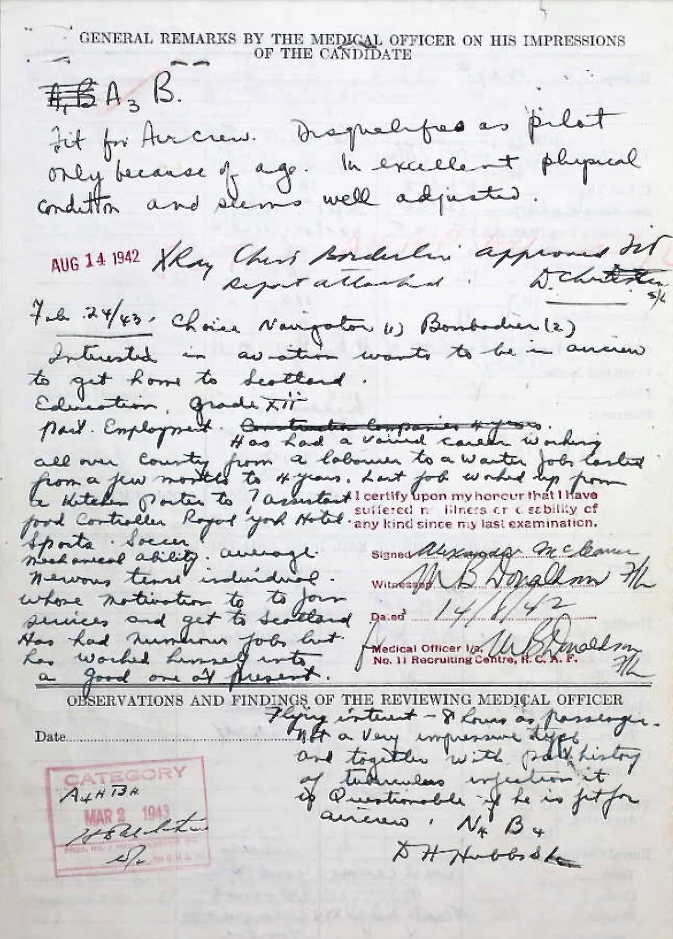 GENERAL REMARKS BY THE MEDICAL OFFICER ON HIS IMPRESSIONS
OF THE CANDIDATE
A3 B.
Fit for Aircrew. Disqualified as pilot
only because of age. In excellent physical
condition and seems well adjusted.
AUG 14 1942 XRay Chest Borderline approved fit
report attached.
Feb. 24/43. Choice Navigator (1) Bombadier (2)
Interested in aviation wants to be in aircrew
to get home to Scotland.
Education. Grade XII
Past. Employment. Construction Companies 4 years.
Has had a varied career working
all over country from a labourer to a waiter Jobs lasted
from a few months to 4 years. Last job worked up from
a Kitchen Porter to ? assistant
food Controller Royal York Hotel.
Sports. Soccer
Mechanical ability. average.
Nervous tense individual.
whose motivation is to join
services and get to Scotland
Has had numerous jobs but
has worked himself into
a good one at present.
I certify upon my honour that I have
suffered no illness or disability of
any kind since my last examination.
Signed Alexander
Witnessed W B Donaldson F/L
Dated 14/8/42
Medical Officer i/c, W B Donaldson
No. 11 Recruiting Centre, R. C. A. F. F/L
OBSERVATIONS AND FINDINGS OF THE REVIEWING MEDICAL OFFICER
Date
Flying interest - 8 hours as passenger.
Not a very impressive type
and together with past history
of tuberculous infection it
is Questionable if he is fit for
aircrew.
B4
D H Hobbs
CATEGORY
A4H B4
MAR 2 1943